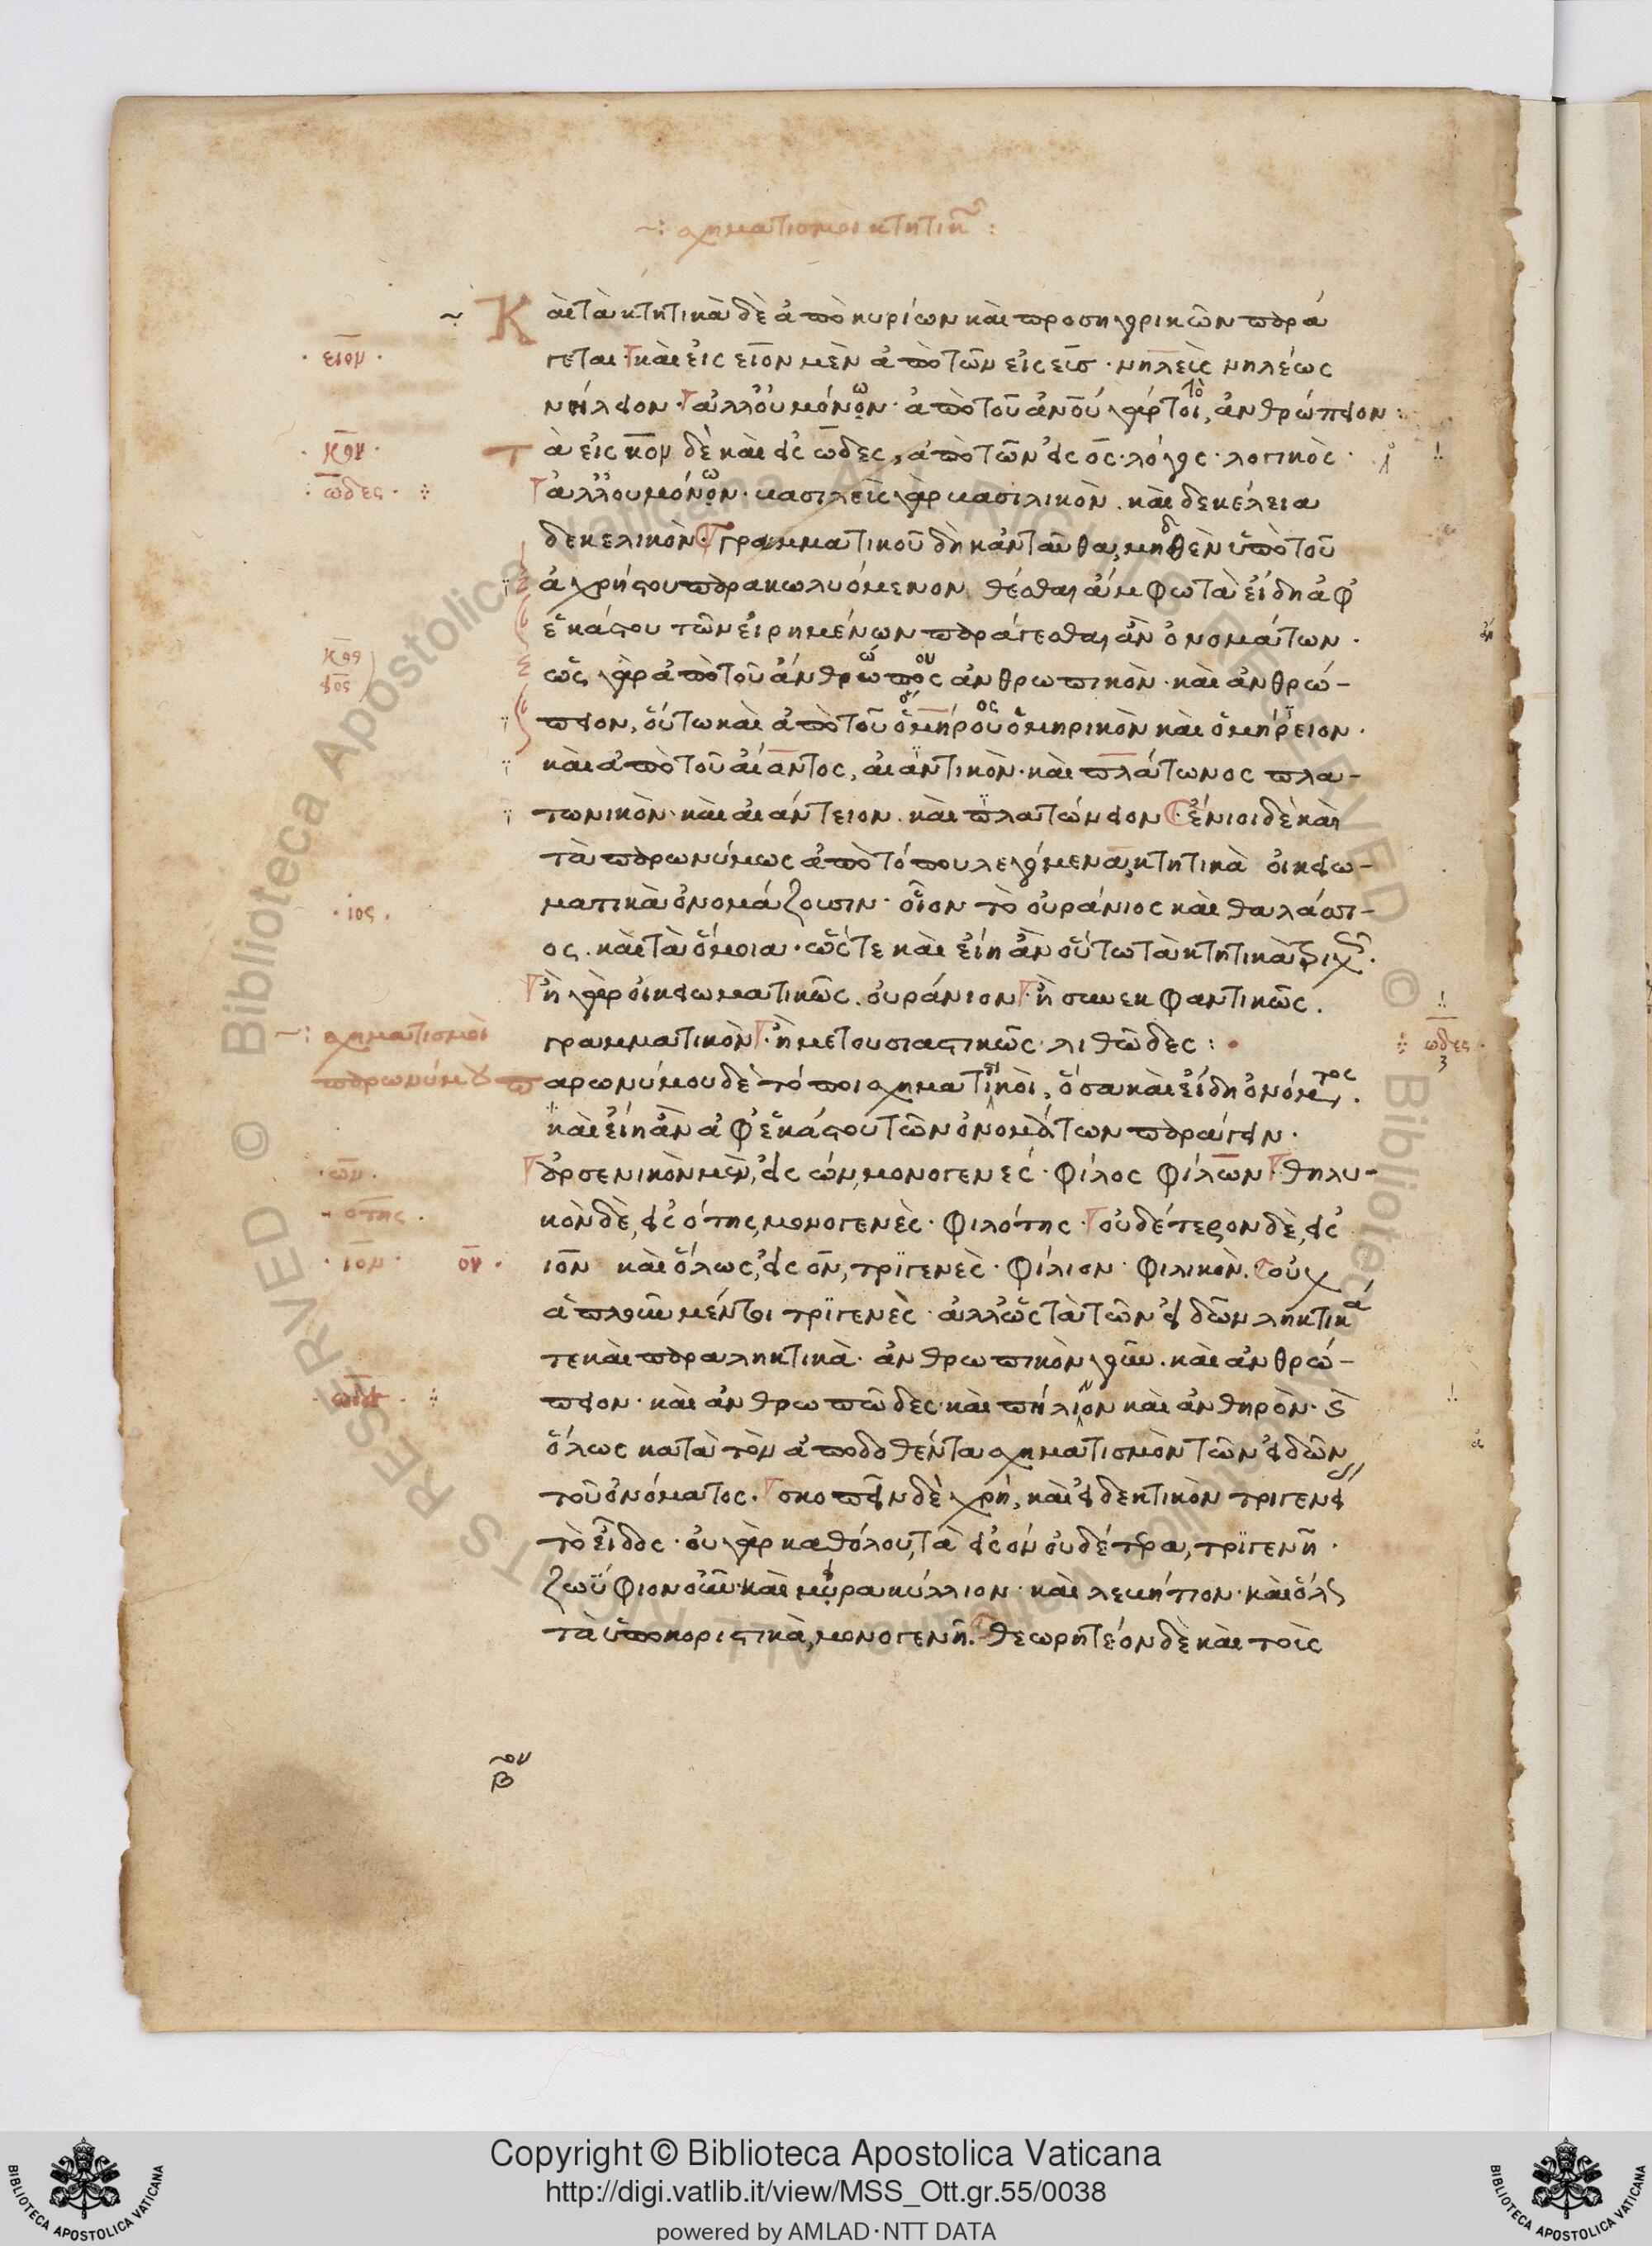 ~: σχηματισμοὶ κτητικῶν :
Καὶ τὰ κτητικὰ δὲ ἀπὸ κυρίων καὶ προσηγορικῶν παρά
γεται· καὶ εἰς ειον μὲν ἀπὸ τῶν εἰς εις· νηλεὺς νηλέως
· ειον ·
νήλειον· ἀλλ' οὐ μόνον· ἀπὸ τοῦ ἀνου γάρ τοι, ἀνθρώπειον :
· κον ·
τὰ εἰς κον δὲ καὶ εἰς ωδες, ἀπὸ τῶν εἰς ος· λόγος· λογικὸς·
· ωδες ·
ἀλλ' οὐ μόνον· κασιλεὺς γὰρ κασιλικὸν· καὶ δεκέλεια
δεκελικὸν· γραμματικοῦ δὴ κἀνταῦθα, μηθὲν ὑπὸ τοῦ
ἀχρήστου παρακωλυόμενον θέσθαι ἄμφω τὰ εἴδη ἀφ'
ἑκάστου τῶν εἰρημένων παράγεσθαι ἂν ὀνομάτων·
κος
ειος
ὡς γὰρ ἀπὸ τοῦ ἀνθρώπος ἀνθρωπικὸν· καὶ ἀνθρώ-
πειον, οὕτω καὶ ἀπὸ τοῦ ὁμήρου ὁμηρικὸν καὶ ὁμήρειον·
καὶ ἀπὸ τοῦ αἴαντος, αἰαντικὸν· καὶ πλάτωνος πλα-
τωνικὸν· καὶ αἰάντειον· καὶ πλατώνειον· ἔνιοι δὲ καὶ
τὰ παρωνύμως ἀπὸ τόπου λεγόμενα, κτητικὰ οἰκειω-
ματικὰ ὀνομάζουσιν· οἷον τὸ οὐράνιος καὶ θαλάσσι-
· ιος ·
ος· καὶ τὰ ὅμοια· ὥστε καὶ εἴη ἂν οὕτω τὰ κτητικὰ τριχῶς·
ἢ γὰρ οἰκειωματικῶς· οὐράνιον· ἢ συνεκφαντικῶς·
γραμματικὸν· ἢ μετουσιαστικῶς· λιθῶδες :
ωδες ·
~: σχηματισμοὶ
παρωνύμου
παρωνύμου δὲ τόποι σχηματικοὶ, ὅσα καὶ εἴδη ὀνόματος·
καὶ εἴη ἂν ἀφ' ἑκάστου τῶν ὀνομάτων παράγειν·
· ων ·
ἀρσενικὸν μὲν, εἰς ων, μονογενές· φίλος φίλων· θηλυ-
- οτης ·
κὸν δὲ, εἰς ότης, μονογενὲς· φιλότης· οὐδέτερον δὲ, εἰς
· ιον · ον ·
ιον καὶ ὅλως, εἰς ον, τριγενὲς· φίλιον· φιλικὸν· οὐχ
ἁπλοῦν μέντοι τριγενὲς· ἀλλ' ὡς τὰ τῶν εἰδῶν ληκτικά
τε καὶ παραληκτικὰ· ἀνθρωπικὸν γοῦν· καὶ ἀνθρώ-
πειον· καὶ ἀνθρωπῶδες· καὶ πήλινον καὶ ἀνθηρὸν· καὶ
ὅλως κατὰ τὸν ἀποδοθέντα σχηματισμὸν τῶν εἰδῶν
τοῦ ὀνόματος· σκοπεῖν δὲ χρή, καὶ εἰ δεκτικὸν τριγενεῖ
τὸ εἶδος· οὐ γὰρ καθόλου, τὰ εἰς ον οὐδέτερα, τριγενῆ·
ζωΰφιον οὖν· καὶ μυρακύλλιον· καὶ λεμήτιον· καὶ ὅλως
τὰ ὑποκοριστικὰ, μονογενῆ· θεωρητέον δὲ καὶ τοῖς